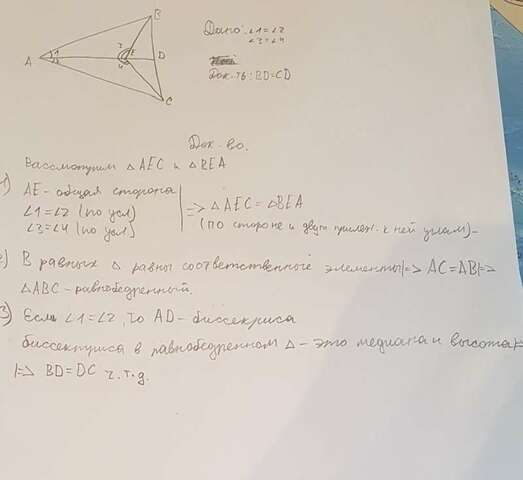 B
Дано: ∠1=∠2
∠3=∠4
A 1 2 3 4 E D
Док-ть: BD=CD
C
Док-во.
Рассмотрим △AEC и △BEA
1) AE - общая сторона
∠1=∠2 (по усл)
∠3=∠4 (по усл)
|=> △AEC = △BEA
(по стороне и двум прилеж. к ней углам)
2) В равных △ равны соответственные элементы |=> AC=AB |=>
△ABC - равнобедренный.
3) Если ∠1=∠2, то AD - биссекриса
биссектриса в равнобедренном △ - это медиана и высота |=
|=> BD=DC ч.т.д.